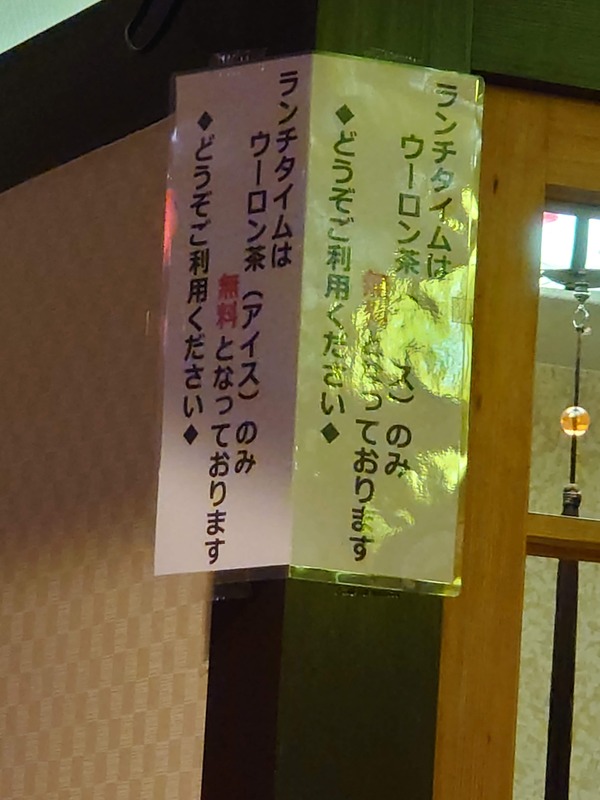 ランチタイムは
ウーロン茶 ス）のみ
無料となっております
◆どうぞご利用ください◆
ランチタイムは
ウーロン茶（アイス）のみ
無料となっております
◆どうぞご利用ください◆